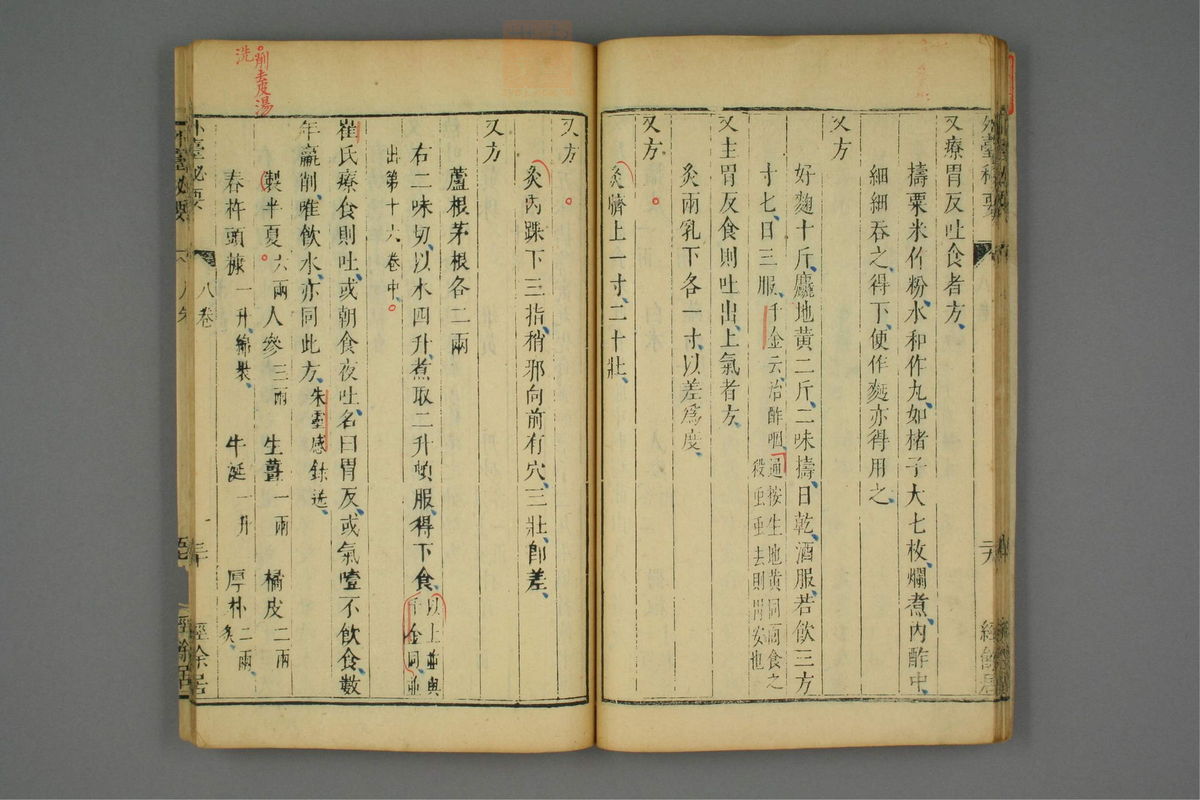 又療胃反吐食者方
擣粟米作粉水和作丸如楮子大七枚爛煮內酢中
細細吞之得下便作麪亦得用之
又方
好麴十斤麤地黃二斤二味擣日乾酒服若飲三方
寸七日三服千金云治酢咽
通按生地黃同麪食之
殺虫重去則胃安也
又主胃反食則吐出上氣者方
灸兩乳下各一寸以差爲度
又方
灸臍上一寸二十壯
又方
灸內踝下三指稍邪向前有穴三壯卽差
又方
蘆根茅根各二兩
右二味切以水四升煮取二升頓服得下食
以上並與
千金同並
出第十六卷中
崔氏療食則吐或朝食夜吐名曰胃反或氣噎不飲食數
年羸削唯飲水亦同此方朱靈感録送
製半夏六兩 人參三兩 生薑一兩 橘皮二兩
舂杵頭糠一升綿裹 牛涎一升 厚朴二兩炙
外臺秘要
八卷
二十九
經餘居
外臺秘要
八卷
三十
經餘居
煎去皮湯
洗